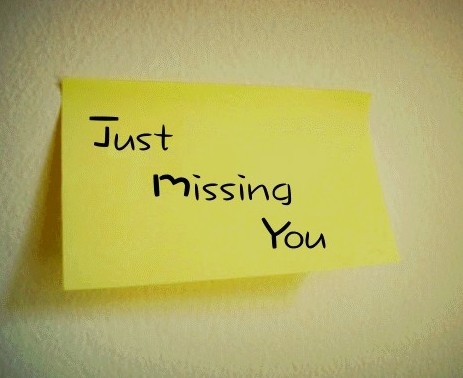 Just
Missing
You